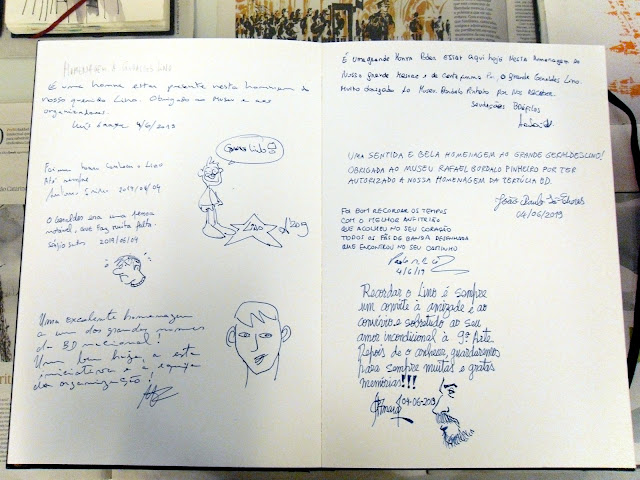 HOMENAGEM A GERALDES LINO
É uma honra estar presente nesta homenagem ao
nosso querido Lino. Obrigado ao Museu e aos
organizadores.
4/6/2019
Grande Lino!
Foi uma honra conhecer o Lino
Até sempre
António 2019/06/04
O Geraldes era uma pessoa
notável, que faz muita falta.
Sérgio 2019/06/04
LINO
Uma excelente homenagem
a um dos grandes
da BD nacional!
Um bem haja a esta
iniciativa e à equipa
da organização!
É uma grande Honra Poder estar aqui hoje Nesta Homenagem ao
Nosso grande e de Certa forma O grande Geraldes Lino.
Muito obrigado ao Museu Bordalo Pinheiro por nos receber
Saudações
UMA SENTIDA E BELA HOMENAGEM AO GRANDE GERALDES LINO!
OBRIGADA AO MUSEU RAFAEL BORDALO PINHEIRO POR TER
AUTORIZADO A NOSSA HOMENAGEM DA TERTÚLIA BD.
João Paulo
04/06/2019
FOI BOM RECORDAR OS TEMPOS
COM O MELHOR ANFITRIÃO
QUE ACOLHEU NO SEU CORAÇÃO
TODOS OS FÃS DE BANDA DESENHADA
QUE ENCONTROU NO SEU CAMINHO
4/6/19
Recordar o Lino é sempre
um convite à amizade e ao
convívio e sobretudo ao seu
amor incondicional à 9ª Arte
Depois de o conhecer, guardaremos
para sempre muitas e gratas
memórias!!!
04-06-2019